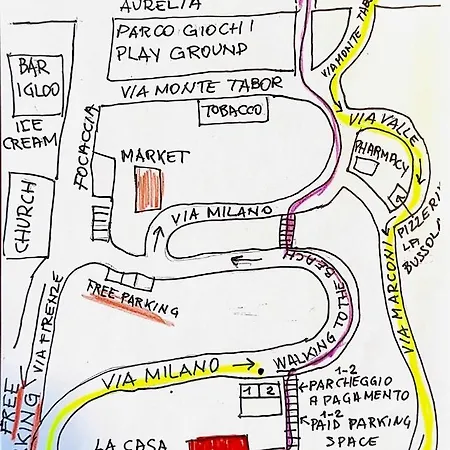 AURELIA
PARCO GIOCHI
PLAY GROUND
VIA MONTE TABOR
VIA MONTE TABO
BAR
IGLOO
ICE
CREAM
FOCACCIA
TOBACCO
VIA VALLE
PHARMACY
MARKET
CHURCH
VIA MILANO
PIZZERIA
LA
BUSSOLA
VIA MARCONI
FREE PARKING
VIA FIRENZE
WALKING TO THE BEACH
FREE
KING
VIA MILANO
1 2
1-2
PARCHEGGIO
A PAGAMENTO
1-2
PAID PARKING
SPACE
LA CASA